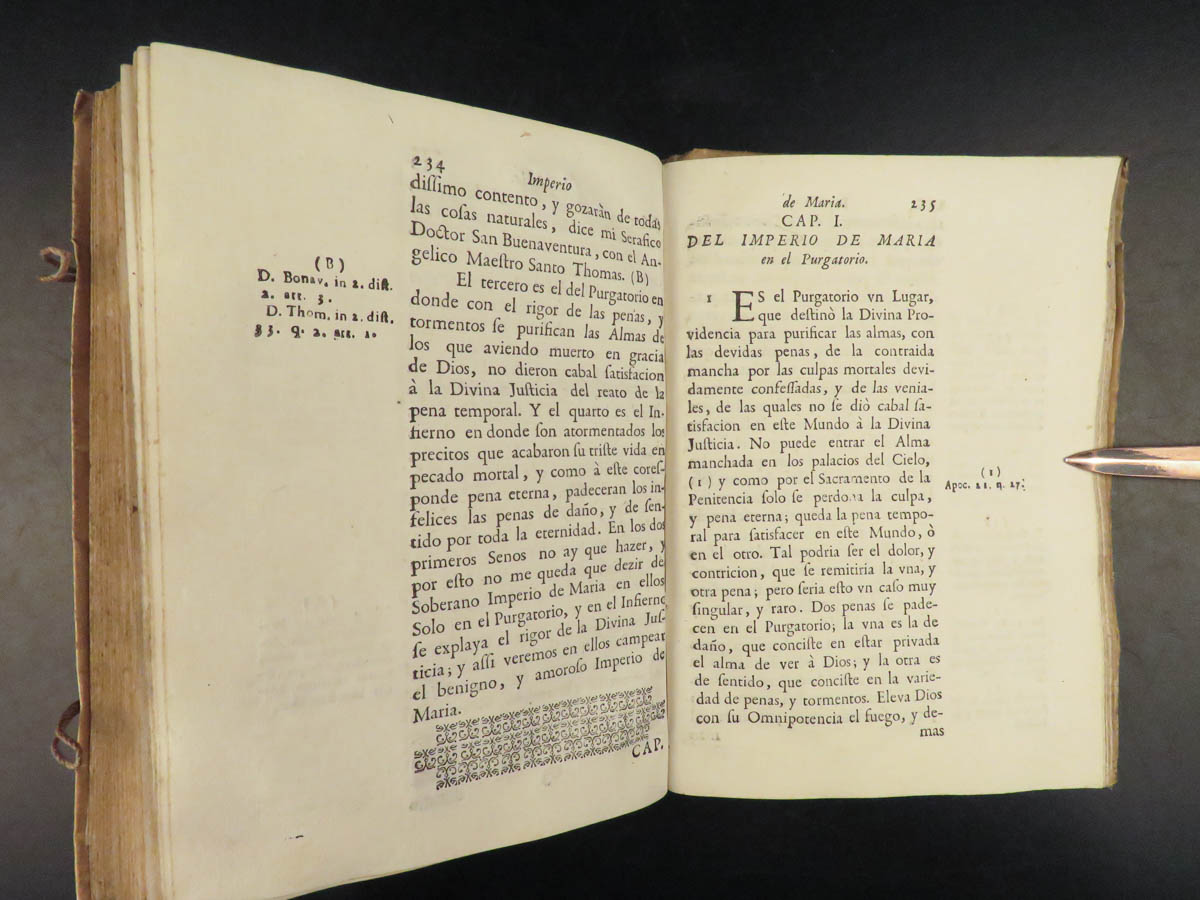 234
Imperio
diſſimo contento, y gozaràn de todas
las coſas naturales, dice mi Serafico
Doctor San Buenaventura, con el An-
gelico Maeſtro Santo Thomas. (B)
El tercero es el del Purgatorio en
donde con el rigor de las penas, y
tormentos ſe purifican las Almas de
los que aviendo muerto en gracia
de Dios, no dieron cabal ſatisfacion
à la Divina Juſticia del reato de la
pena temporal. Y el quarto es el In-
fierno en donde ſon atormentados los
precitos que acabaron ſu triſte vida en
pecado mortal, y como à eſte coreſ-
ponde pena eterna, padeceran los in-
felices las penas de daño, y de ſen-
tido por toda la eternidad. En los dos
primeros Senos no ay que hazer, y
por eſto no me queda que dezir de
Soberano Imperio de Maria en ellos
Solo en el Purgatorio, y en el Infierno
ſe explaya el rigor de la Divina Juſ-
ticia; y aſſi veremos en ellos campear
el benigno, y amoroſo Imperio de
Maria.
CAP.
(B)
D. Bonav. in 2. diſt.
2. art. 3.
D. Thom. in 2. diſt.
33. q. 2. art. 1.
de Maria.
235
CAP. I.
DEL IMPERIO DE MARIA
en el Purgatorio.
1 ES el Purgatorio vn Lugar,
que deſtinò la Divina Pro-
videncia para purificar las almas, con
las devidas penas, de la contraida
mancha por las culpas mortales devi-
damente confeſſadas, y de las venia-
les, de las quales no ſe diò cabal ſa-
tisfacion en eſte Mundo à la Divina
Juſticia. No puede entrar el Alma
manchada en los palacios del Cielo,
(1) y como por el Sacramento de la
Penitencia ſolo ſe perdona la culpa,
y pena eterna; queda la pena tempo-
ral para ſatisfacer en eſte Mundo, ò
en el otro. Tal podria ſer el dolor, y
contricion, que ſe remitiria la vna, y
otra pena; pero ſeria eſto vn caſo muy
ſingular, y raro. Dos penas ſe pade-
cen en el Purgatorio; la vna es la de
daño, que conciſte en eſtar privada
el alma de ver à Dios; y la otra es
de ſentido, que conciſte en la varie-
dad de penas, y tormentos. Eleva Dios
con ſu Omnipotencia el fuego, y de-
mas
(1)
Apoc. 21. n. 27.